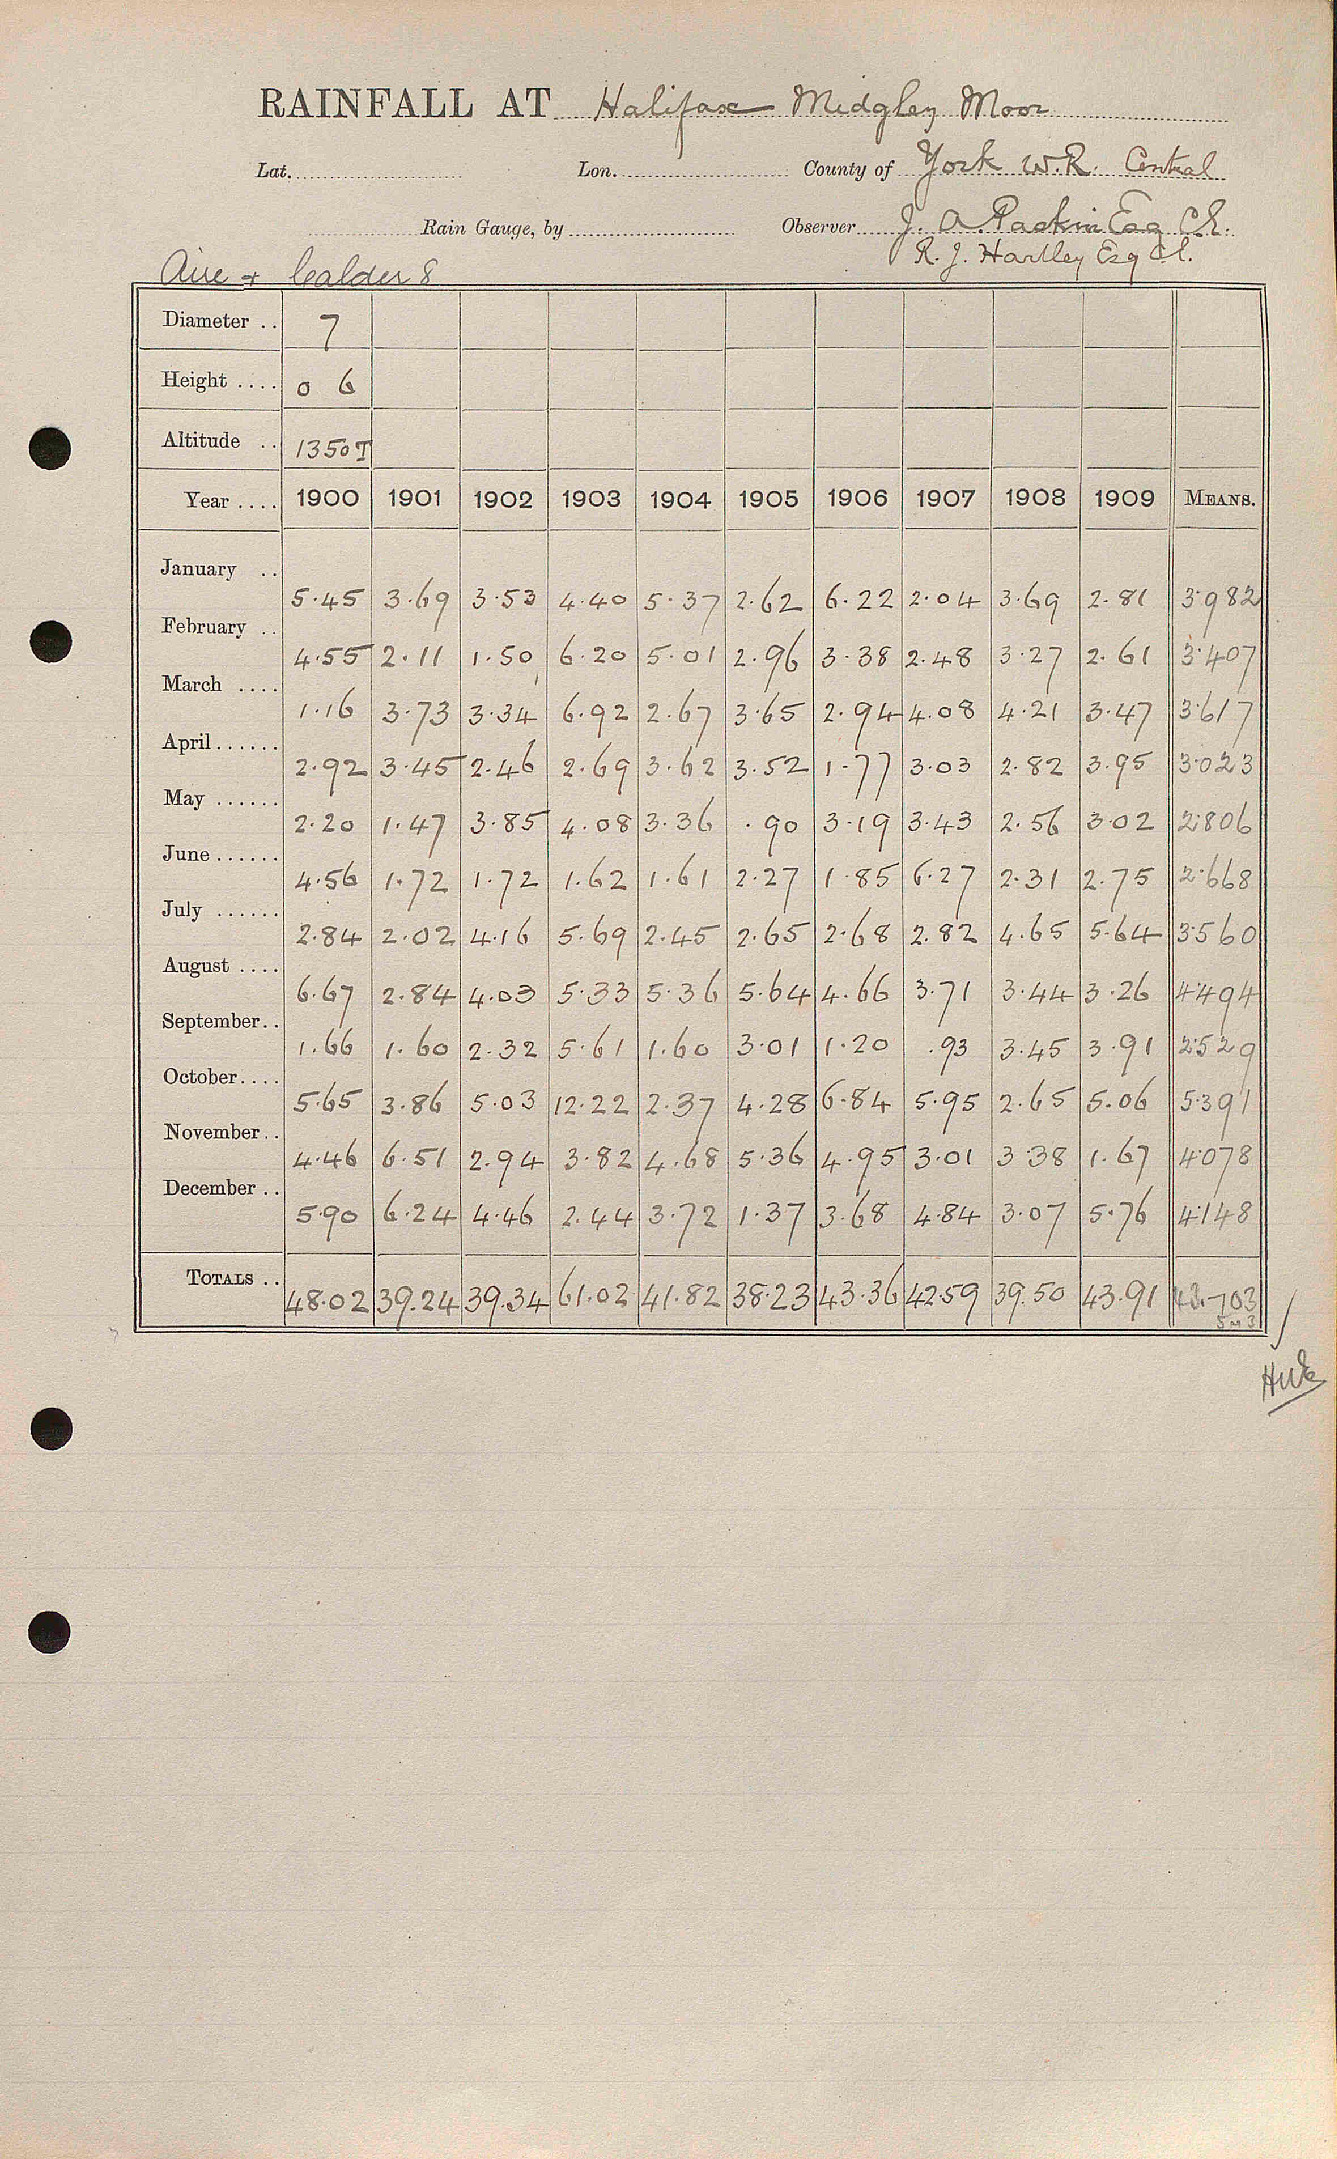 RAINFALL AT Halifax Midgley Moor
Lat. Lon. County of York W.R. Central
Rain Gauge, by Observer J. A. Paskin Esq C.E.
R. J. Hartley Esq CE.
Aire & Calder 8
Diameter .. 7
Height .... 0 6
Altitude .. 1350T
Year .... 1900 1901 1902 1903 1904 1905 1906 1907 1908 1909 MEANS.
January .. 5.45 3.69 3.53 4.40 5.37 2.62 6.22 2.04 3.69 2.81 3.982
February .. 4.55 2.11 1.50 6.20 5.01 2.96 3.38 2.48 3.27 2.61 3.407
March .... 1.16 3.73 3.34 6.92 2.67 3.65 2.94 4.08 4.21 3.47 3.617
April...... 2.92 3.45 2.46 2.69 3.62 3.52 1.77 3.03 2.82 3.95 3.023
May ...... 2.20 1.47 3.85 4.08 3.36 .90 3.19 3.43 2.56 3.02 2.806
June...... 4.56 1.72 1.72 1.62 1.61 2.27 1.85 6.27 2.31 2.75 2.668
July ...... 2.84 2.02 4.16 5.69 2.45 2.65 2.68 2.82 4.65 5.64 3.560
August .... 6.67 2.84 4.03 5.33 5.36 5.64 4.66 3.71 3.44 3.26 4.494
September.. 1.66 1.60 2.32 5.61 1.60 3.01 1.20 .93 3.45 3.91 2.529
October.... 5.65 3.86 5.03 12.22 2.37 4.28 6.84 5.95 2.65 5.06 5.391
November.. 4.46 6.51 2.94 3.82 4.68 5.36 4.95 3.01 3.38 1.67 4.078
December .. 5.90 6.24 4.46 2.44 3.72 1.37 3.68 4.84 3.07 5.76 4.148
TOTALS .. 48.02 39.24 39.34 61.02 41.82 38.23 43.36 42.59 39.50 43.91 43.703